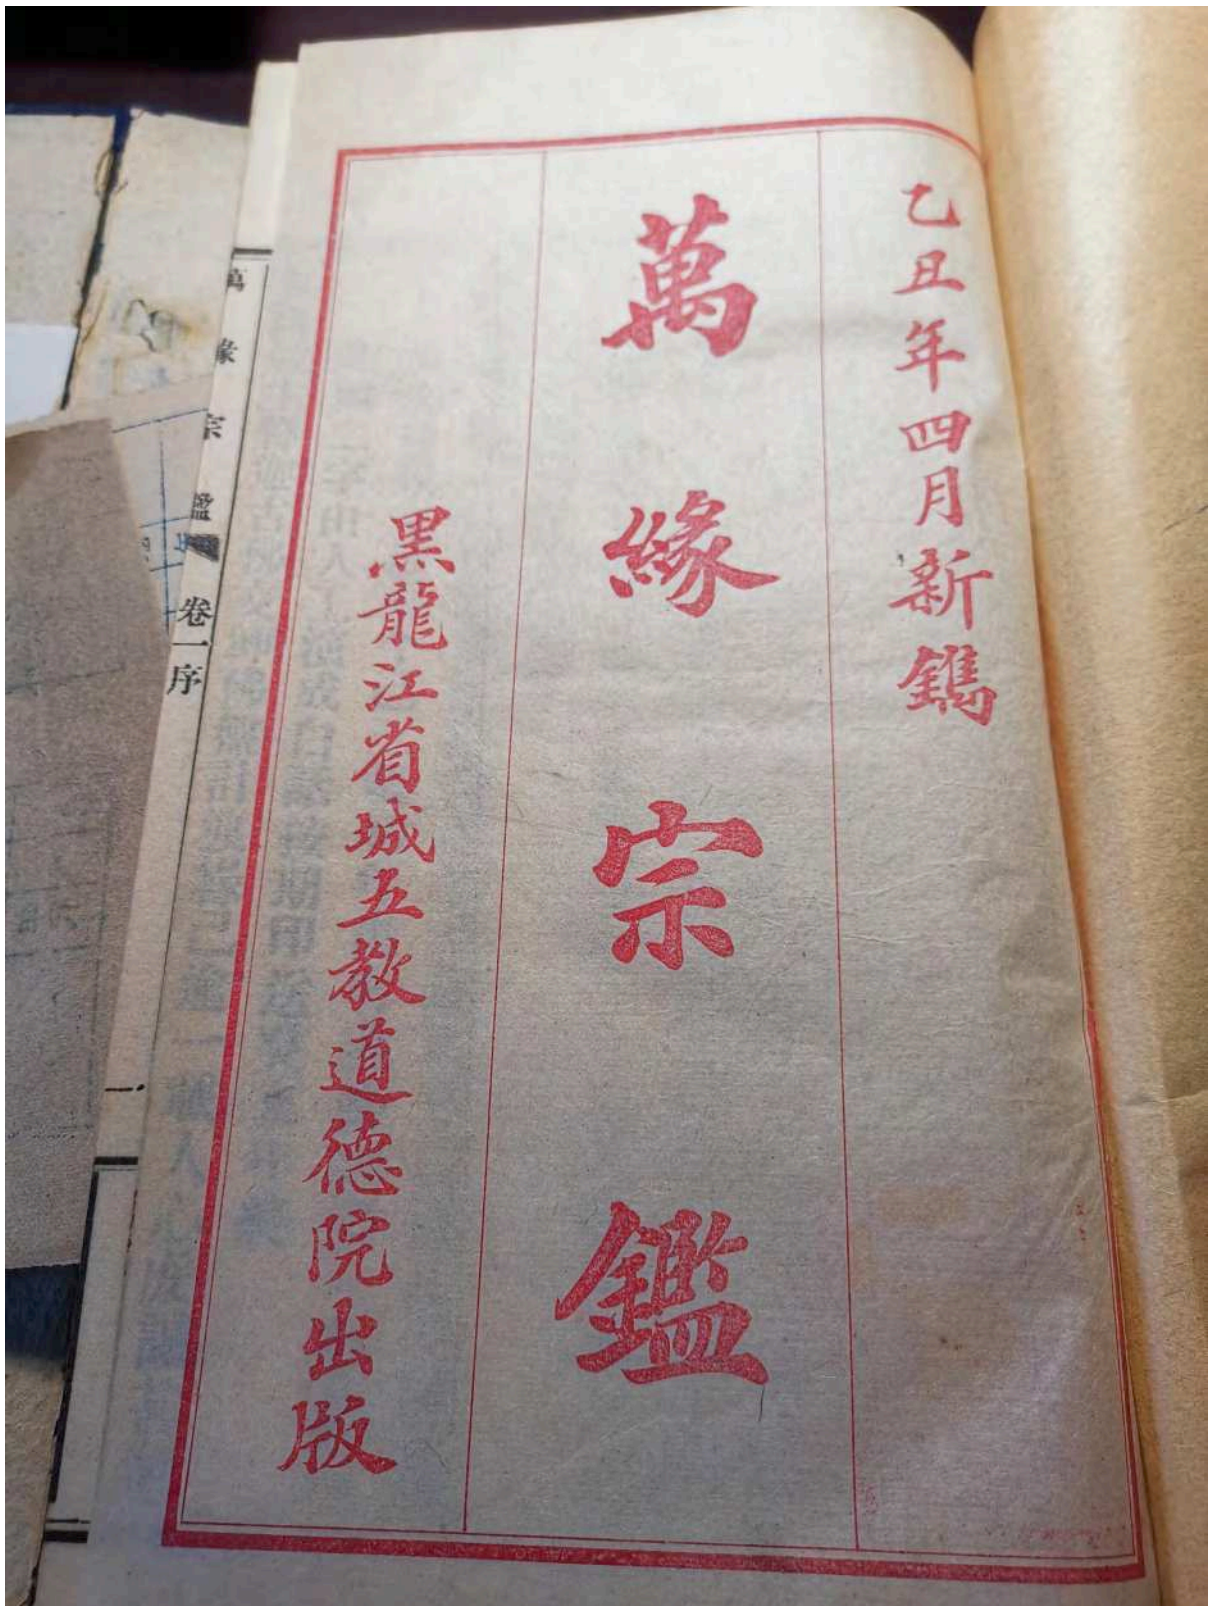 乙丑年四月新鐫
萬緣宗鑑
黑龍江省城五教道德院出版
萬緣宗鑑 卷一序
一